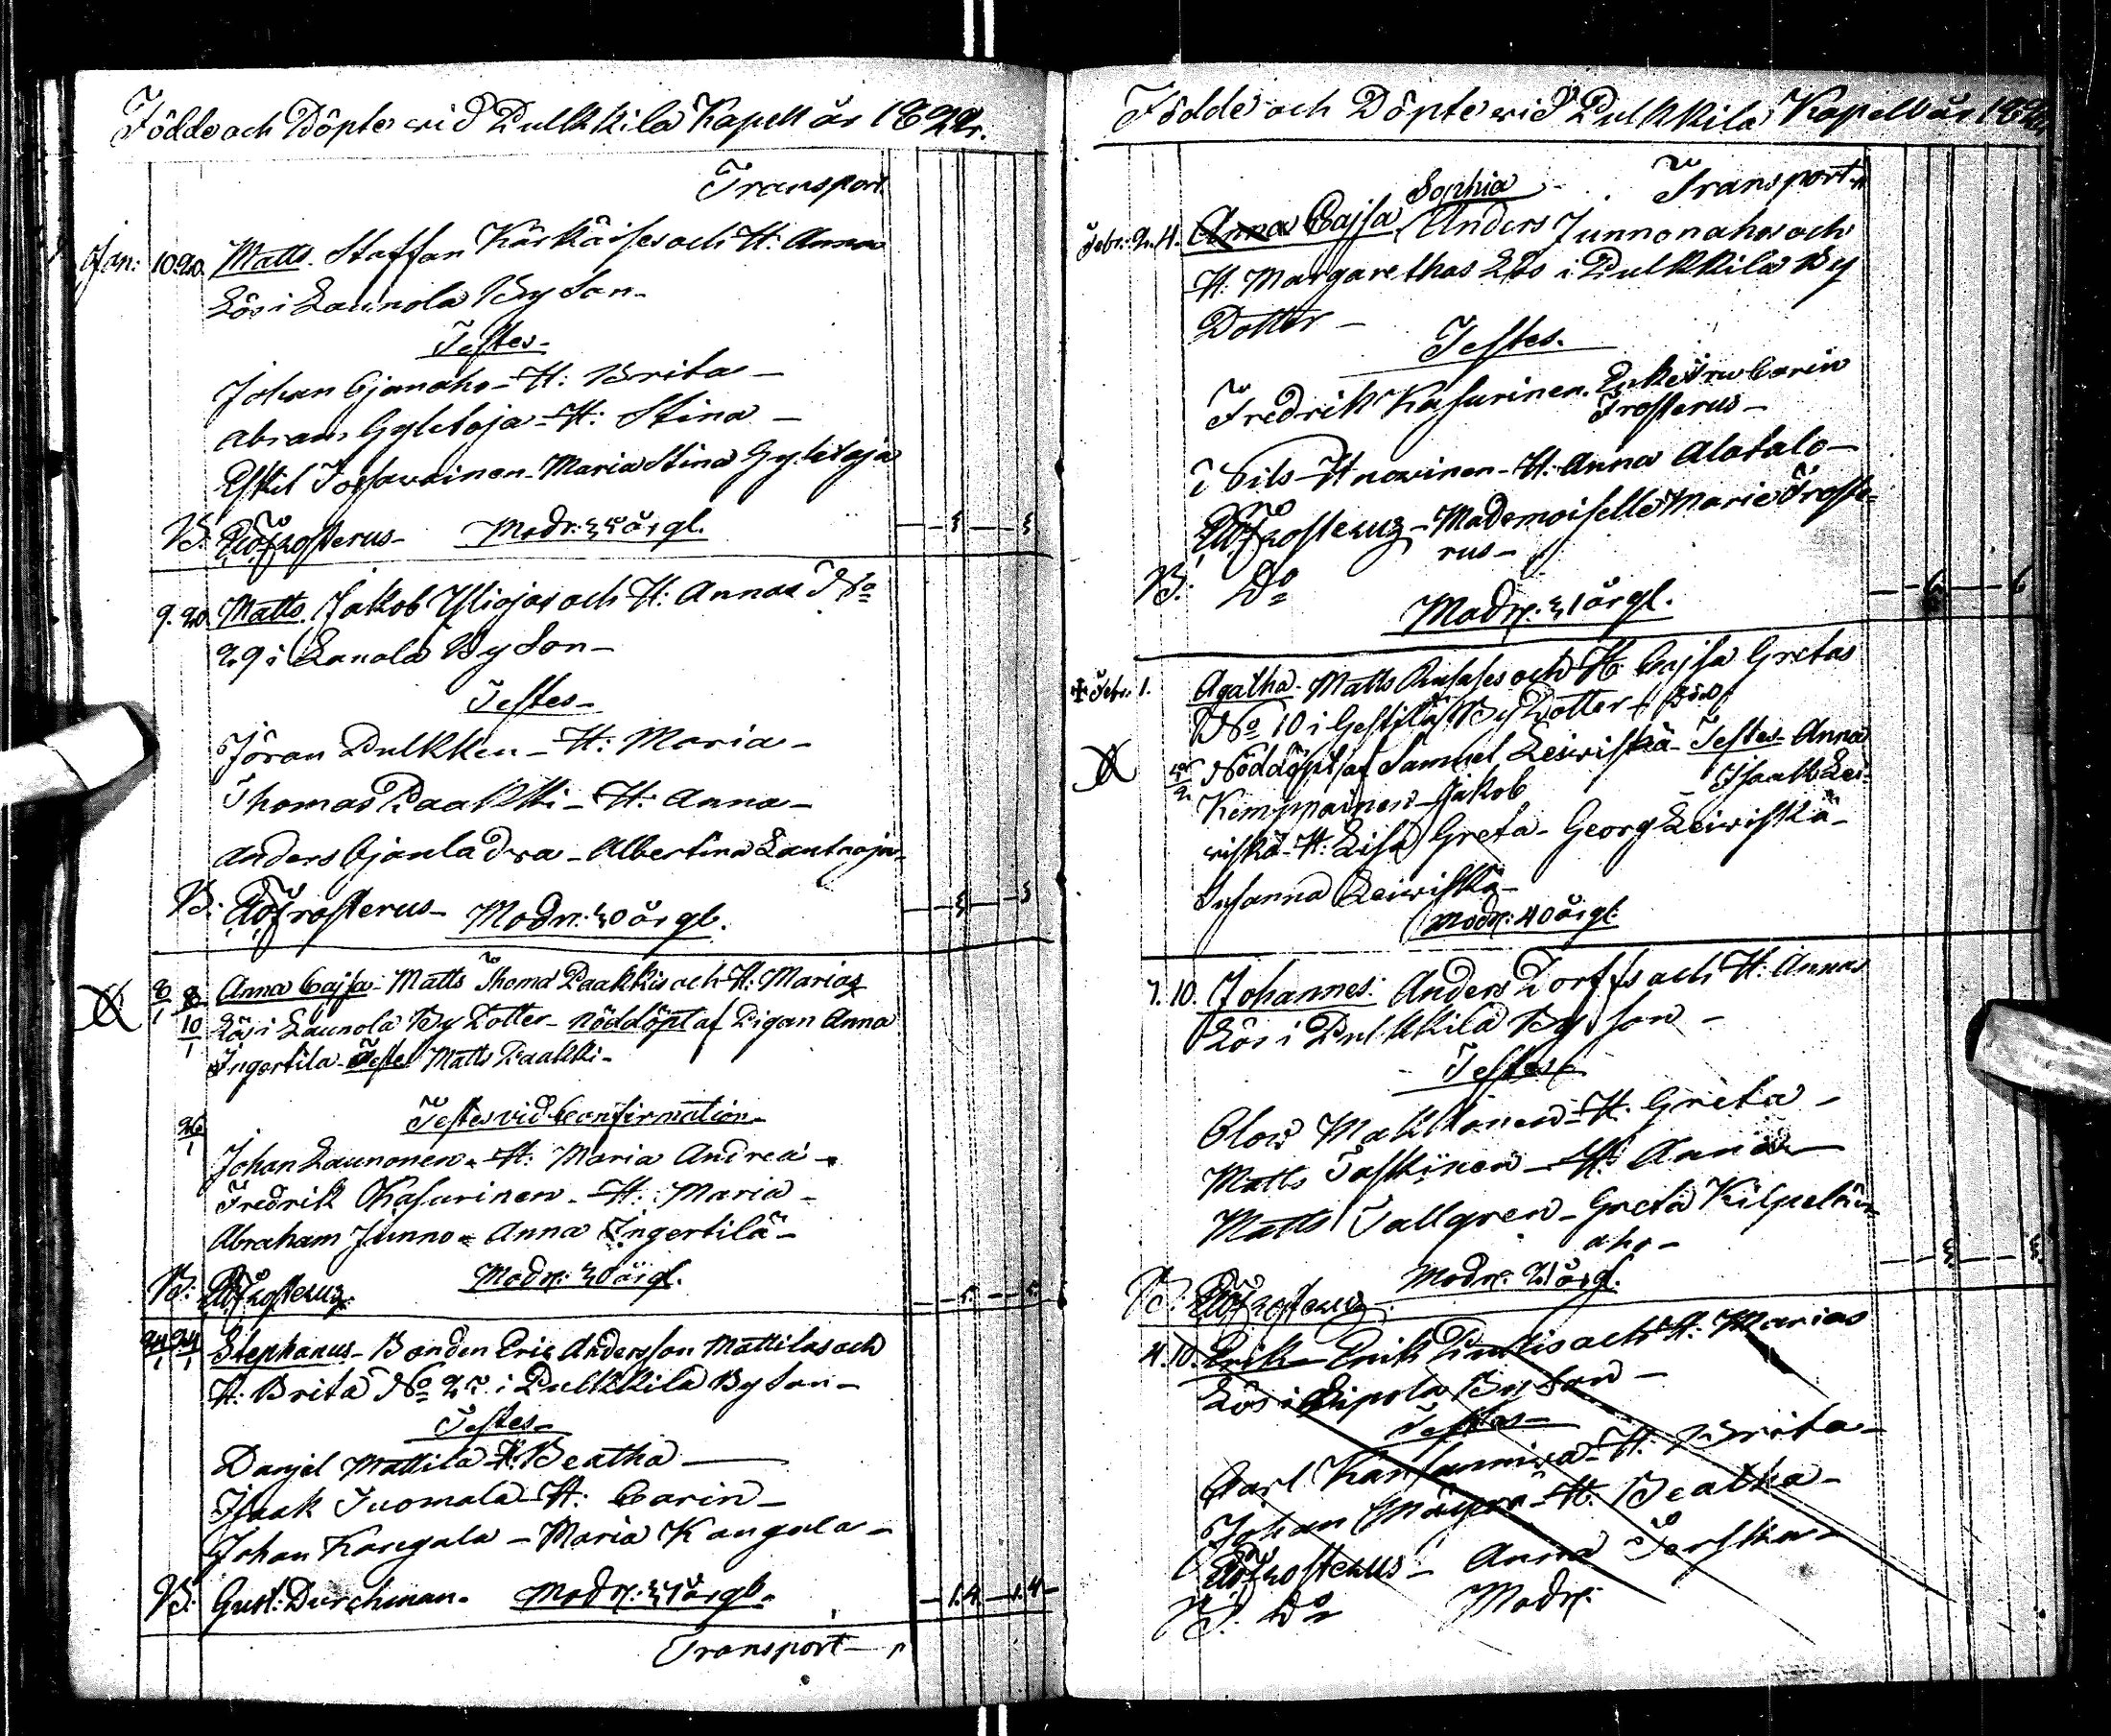 Födde och Döpte wid Pulkkila Kapell år 1822.
Transport
Jan: 10. 20. Matts. Staffan Kärkäises och H: Anna
Lös i Launola By Son-
Testes-
Johan Ojanaho - H: Brita -
Abram Gyletoja - H: Stina -
Eskil Maria Stina Gyletoja
B: Frosterus - Modr: 35 år gl.
9. 20. Matts. Jakob Yliojas och H: Annas No
29 i Lanola By Son -
Testes -
Jöran Pulkken - H: Maria -
Thomas Paakki - H: Anna -
Anders Ojanladwa - Albertina
B: Frosterus - Modr: 30 år gl.
8/1 10/1 Anna Cajsa Matts Thoma Paakkis och H: Marias
Lös i Launola By Dotter - nöddöpt af Pigan Anna
Ingertila - Teste Matts Paakki -
Testes vid Confirmation -
26/1 Johan Launonen - H: Maria Andrea -
Fredrik Kasurinen - H: Maria -
Abraham Junno - Anna Ingertilä -
B: Frosterus Modr: 30 år gl.
24/1 24/1 Stephanus - Bonden Eric Andersson Mattilas och
H: Brita No 25 i Pulkkila By Son -
Testes -
Danjel Mattila - H: Beatha -
Isaak Tuomala - H: Carin -
Johan Kangala - Maria Kangala -
B: Gust: Durchman - Modr: 31 år gl -
Transport -
Födde och Döpte wid Pulkkila Kapell år 1822
Transport
Sophia
Febr: 2. 4. Anna Cajsa Anders Junnonahos och
H: Margarethas Lös i Pulkkila By
Dotter -
Testes.
Fredrik Kasurinen. Enkefru Carin
Frosterus -
Nils H: Anna Alatalo -
Frosterus - Mademoiselle Marie Froste-
rus -
B: Do
Modr: 31 år gl.
Febr: 1. Agatha - Matts och H: Cajsa Gretas
No 10 i Gestilä By Dotter -
Nöddöpt af Samuel Leiwiskä - Testes Anna
Kemppainen - Jakob Isaak Lei-
wiskä - H: Lisa Greta - Georg Leiwiskä -
Susanna Leiwiskä -
Modr: 40 år gl.
7. 10. Johannes: Anders Torffs och H: Annas
Lös i Pulkkila By Son -
Testes
Olow Makkonen - H: Greta -
Matts Taskinen - H: Anna -
Matts Tallgren - Greta Kilpelän-
aho -
B: Frosterus Modr: 21 år gl.
4. 10. Erik - Erik och H: Marias
Lös i Pipola By Son -
Testes -
Carl H: Brita -
Johan H: Beatha -
Frosterus - Anna
B. Do Modr: